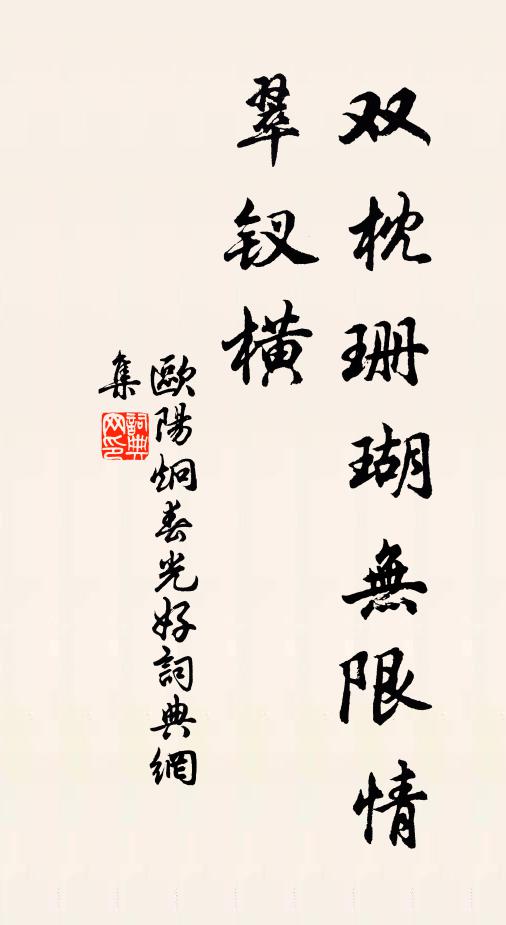 双枕珊瑚無限情
翠钗橫
歐陽炯春光好詞典網
集
詞典
网印